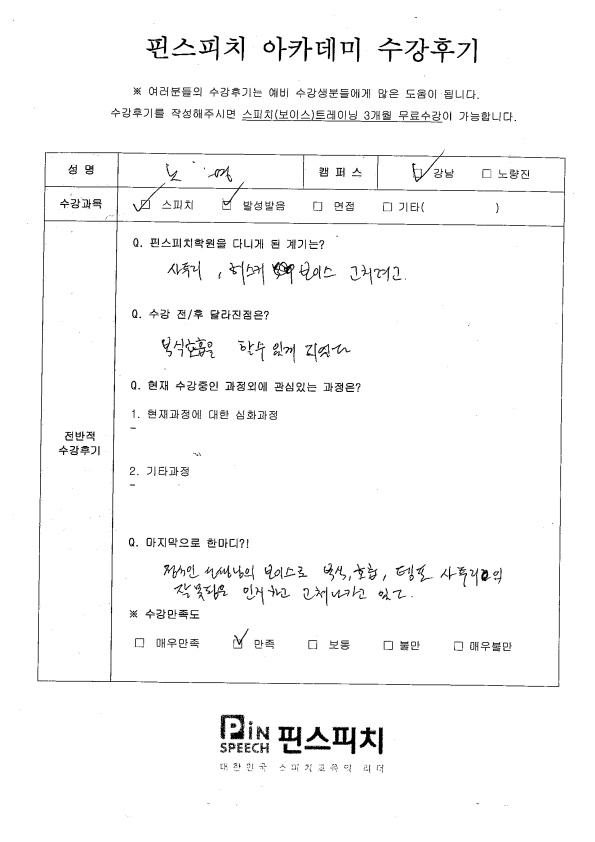 핀스피치 아카데미 수강후기
※ 여러분들의 수강후기는 예비 수강생분들에게 많은 도움이 됩니다.
수강후기를 작성해주시면 스피치(보이스)트레이닝 3개월 무료수강이 가능합니다.
성 명 노 영 캠 퍼 스 ☑ 강남 □ 노량진
수강과목 ☑ 스피치 ☑ 발성발음 □ 면접 □ 기타( )
Q. 핀스피치학원을 다니게 된 계기는?
사투리, 허스키 보이스 고치려고.
Q. 수강 전/후 달라진점은?
복식호흡을 할수 있게 되었다
Q. 현재 수강중인 과정외에 관심있는 과정은?
1. 현재과정에 대한 심화과정
-
전반적
수강후기
2. 기타과정
-
Q. 마지막으로 한마디?!
선생님의 보이스로 복식, 호흡, 템포 사투리의
잘못됨을 인지하고 고쳐나가고 있다.
※ 수강만족도
□ 매우만족 ☑ 만족 □ 보통 □ 불만 □ 매우불만
PiN
SPEECH 핀스피치
대한민국 스피치교육의 리더